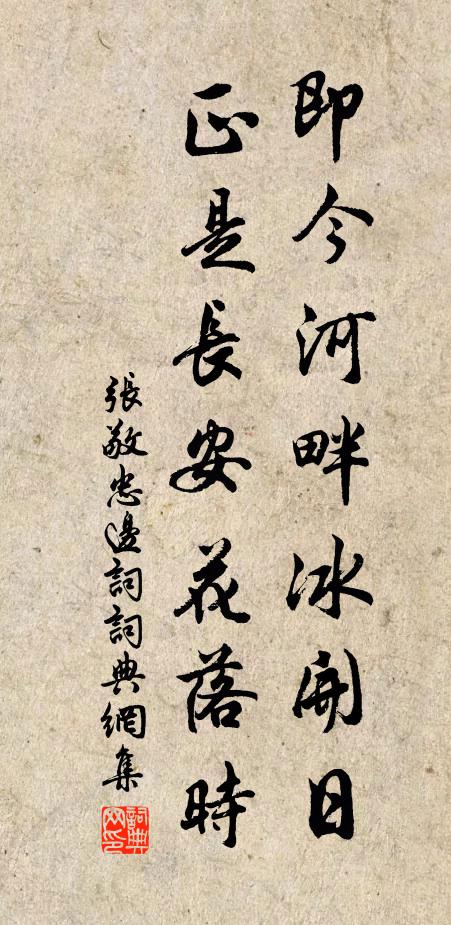 即今河畔冰開日
正是長安花落時
張敬忠邊詞詞典網集
詞典网印